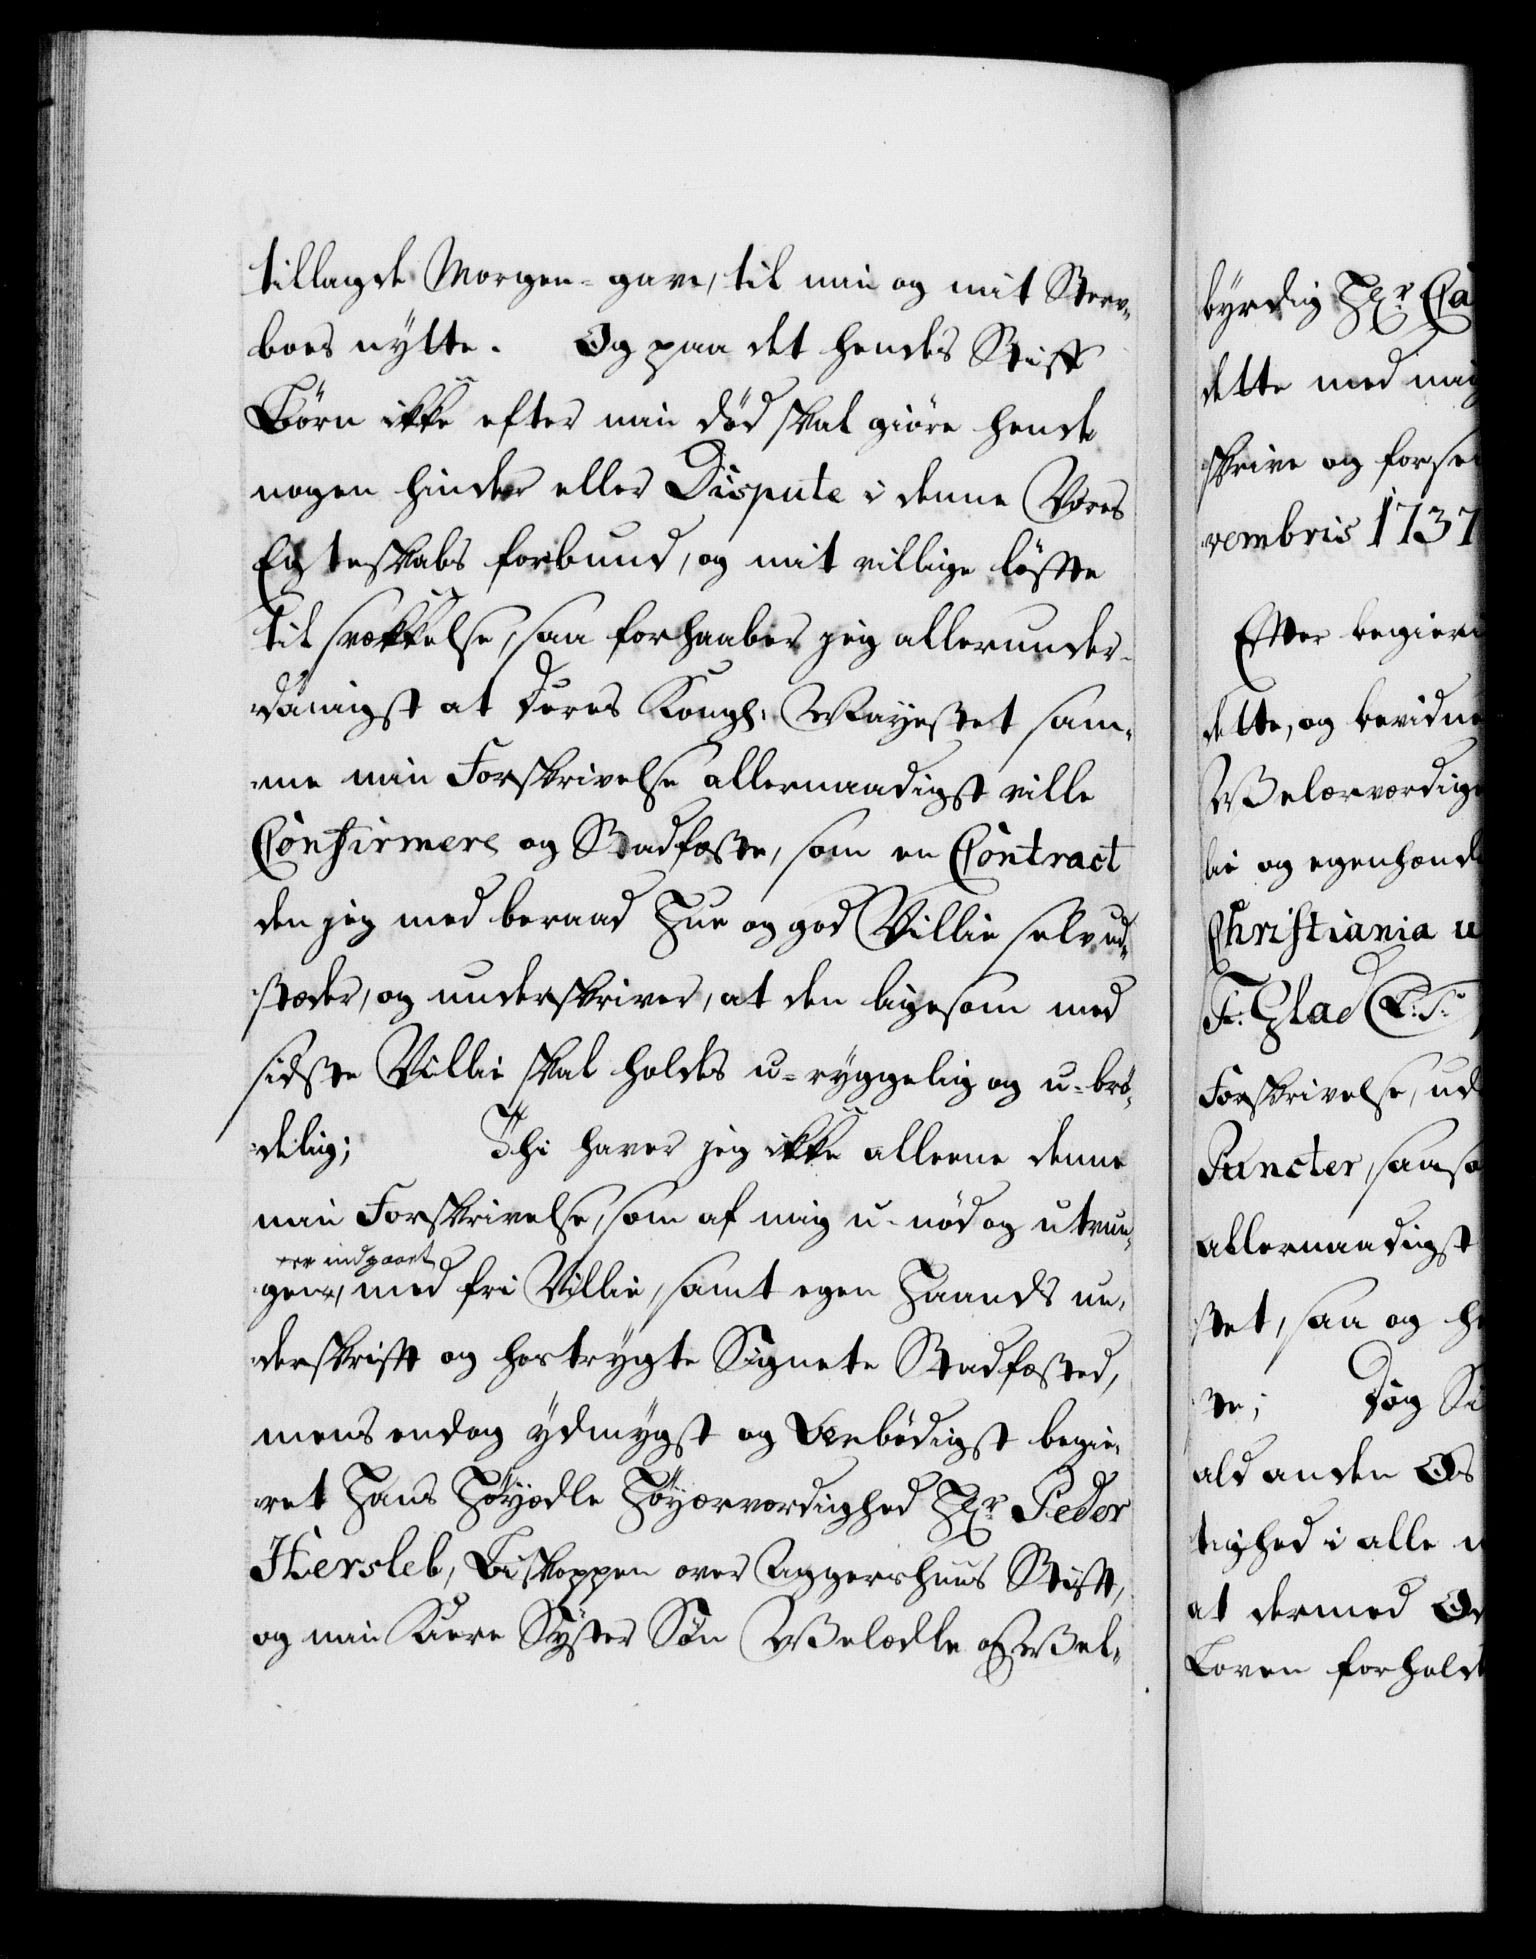 tillagde Morgen-gave, til min og mit Sterv-
boes nytte. Og paa det hendes Stiff
Börn ikke efter min död skal giöre hende
nogen hinder eller Dispute i denne Vores
Egteskabs forbund, og mit villige löffte
til svækkelse, saa forhaaber jeg allerunder-
danigst at Deres Kongl: Mayestet sam-
me min Forskrivelse allernaadigst ville
Confirmere og Stadfæste, som en Contract
den jeg med beraad Hue og god Villie selv ud-
stæder, og underskriver, at den ligesom med
sidste Villie skal holdes u-ryggelig og u-brö-
delig; Thi haver jeg ikke alleene denne
min Forskrivelse, som af mig u-nöd og utvun-
gen, med fri Villie, samt egen Haands un-
derskrifft og hostrygte Signete Stadfæsted,
mens endog ydmygst og Ærbödigst begie-
ret Hans Höyædle Höyærværdighed Hr Peder
Hersleb, Biskoppen over Aggershuus Stifft,
og min Kiere Syster Sön Velædle og Vel-
byrdig Hr Ca
dette med mig
skrive og forse
vembris 1737
Efter begiering
dette, og bevidne
Velærværdige
lie og egenhænd
Christiania u
Fr: Glad (L:S:)
Forskrivelse, ud
Puncter, saaso
allernaadigst
stet, saa og he
te; Dog Si
ald anden Os
tighed i alle
at dermed
Loven forhold